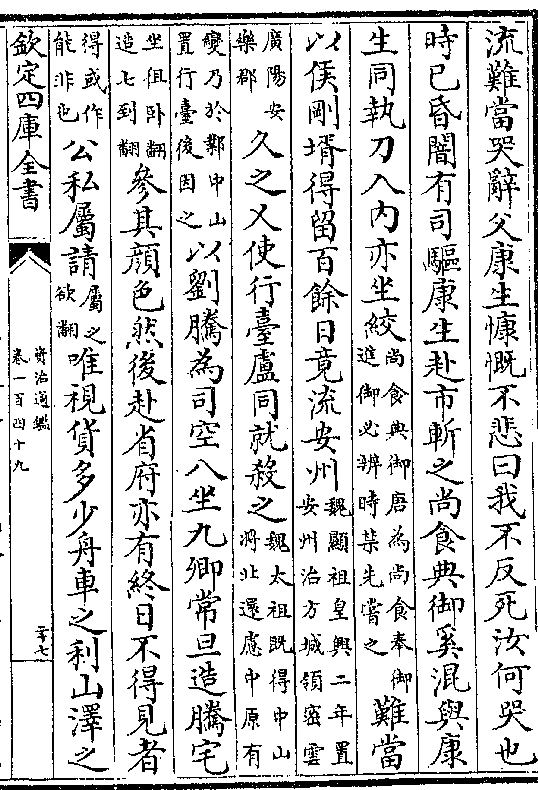 流難當哭辭父康生慷慨不悲曰我不反死汝何哭也
時已昏闇有司驅康生赴市斬之尚食典御奚混與康
生同執刀入内亦坐絞尚食典御唐為尚食奉御
進御必辨時禁先嘗之難當
以侯剛壻得留百餘日竟流安州魏顯祖皇興二年置
安州治方城領密雲
廣陽安
樂郡久之乂使行臺盧同就殺之魏太祖既得中山
將北還慮中原有
變乃於鄴中山
置行臺後因之以劉騰為司空八坐九卿常旦造騰宅
坐徂卧翻
造七到翻參其顔色然後赴省府亦有終日不得見者
得或作
能非也公私屬請屬之
欲翻唯視貨多少舟車之利山澤之
欽定四庫全書
資治通鑑
卷一百四十九
二十七